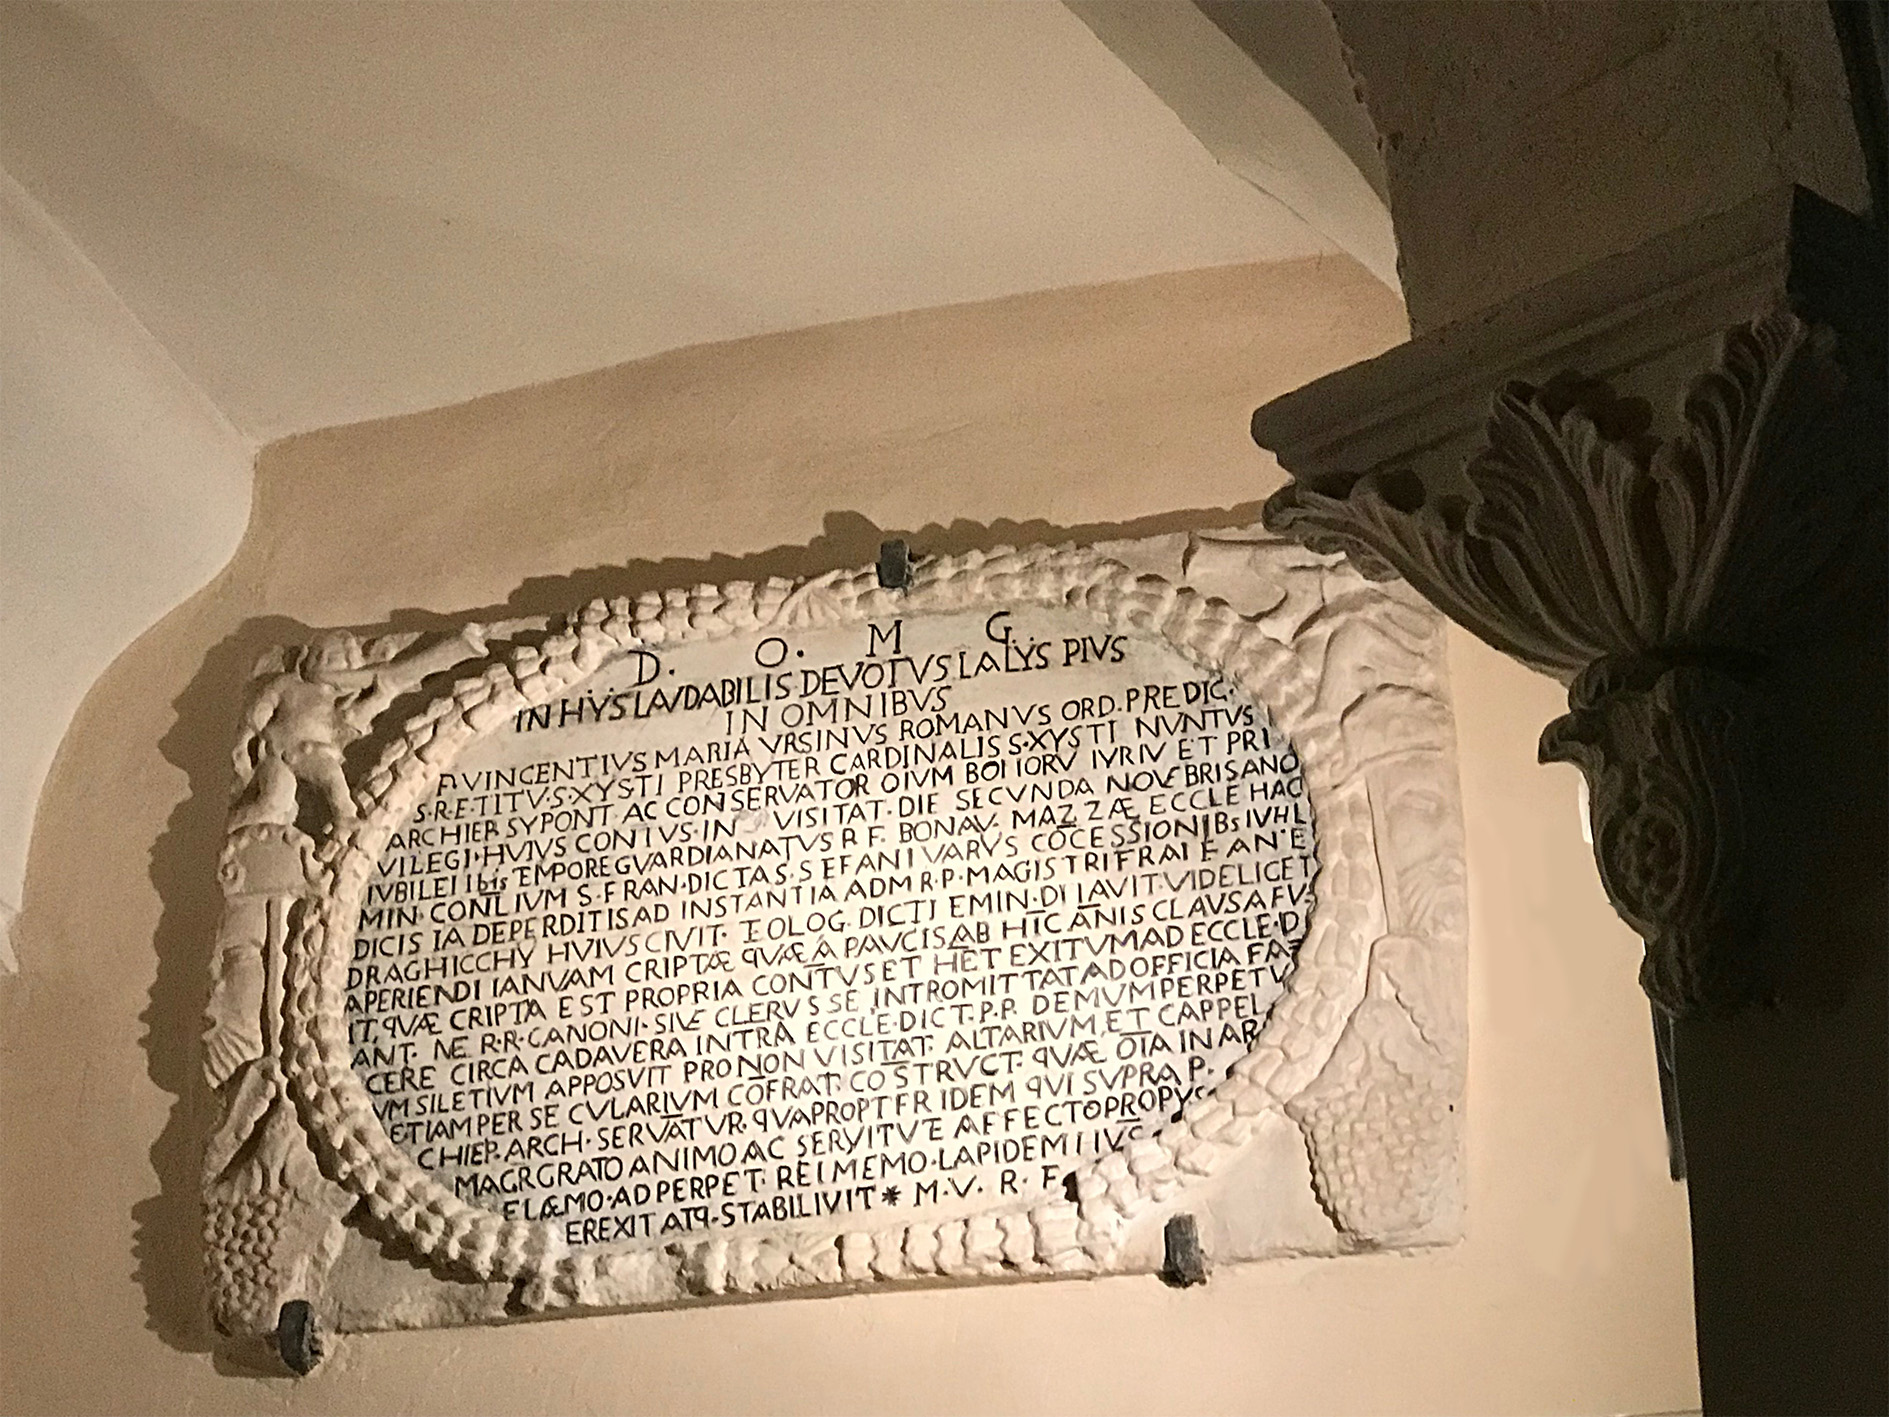 D. O. M G.
IN HYS LAVDABILIS DEVOTVS LALYS PIVS
IN OMNIBVS
F. VINCENTIVS MARIA VRSINVS ROMANVS ORD. PREDIC.
S.R.E.TITV.S.XYSTI PRESBYTER CARDINALIS S.XYSTI NVNTVS
ARCHIEP. SYPONT AC CONSERVATOR OIVM BOI IORV IVRIV ET PRI
VILEGI HVIVS CONTVS. IN VISITAT. DIE SECVNDA NOVEBRIS ANO
IVBILEI Ibis TEMPORE GVARDIANATVS R F. BONAV. MAZZÆ ECCLE HAC
MIN. CONLIVM S. FRAN. DICTAS. S EFANI VARYS COCESSIONIBs IVHL
DICIS IA DEPERDITIS AD INSTANTIA ADM R.P. MAGISTRI FRAI F AN E
DRAGHICCHY HVIVS CIVIT. EOLOG. DICTI EMIN. DI LAVIT. VIDELICET
APERIENDI IANVAM CRIPTÆ QVÆ A PAVCIS AB HIC ANIS CLAVSA FV.
IT, QVÆ CRIPTA EST PROPRIA CONTVS ET HET EXITVM AD ECCLE. D
ANT. NE R.R. CANONI. SIVE CLERVS SE INTROMITTAT AD OFFICIA FA
CERE CIRCA CADAVERA INTRA ECCLE. DICT. P.P. DEMVM PERPETV
VM SILETIVM APPOSVIT PRO NON VISITAT. ALTARIVM, ET CAPPEL
ETIAM PER SE CVLARIVM COFRAT. COSTRVCT. QVÆ OIA IN AR
CHIEP. ARCH. SERVATVR. QVAPROPT FR IDEM QVI SVPRA P.
MAGR GRATO ANIMO AC SERVITVTE AFFECTO PROPYS
ELÆMO. AD PERPET. REI MEMO. LAPIDEM
EREXIT ATQ. STABILIVIT * M. V. R. F.